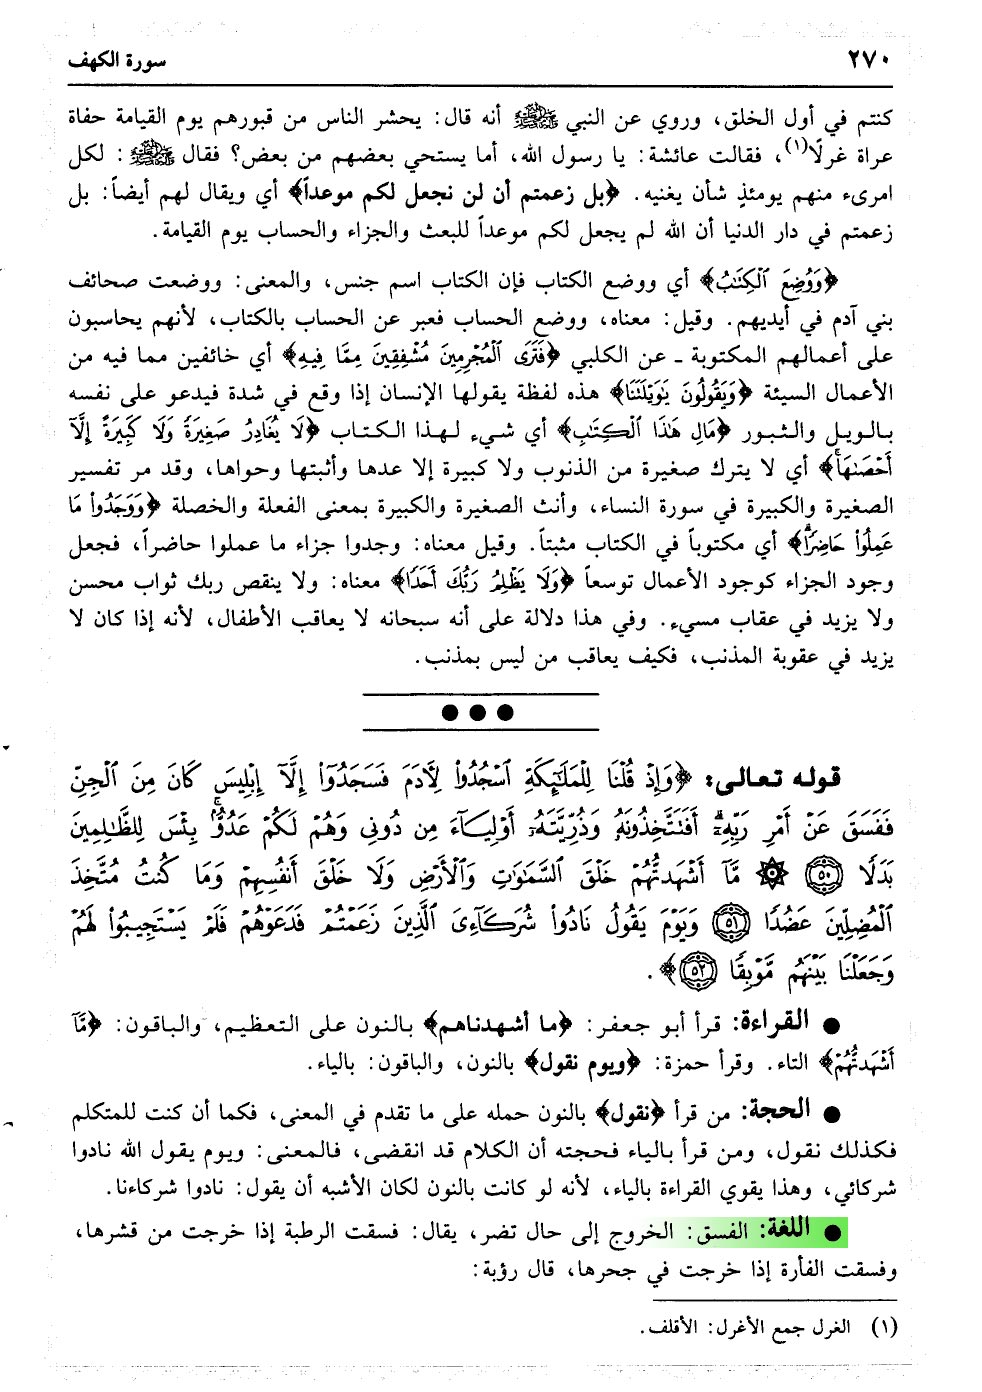 ٢٧٠ سورة الكهف
كنتم في أول الخلق، وروي عن النبي ﷺ أنه قال: يحشر الناس من قبورهم يوم القيامة حفاة
عراة غرلًا(١)، فقالت عائشة: يا رسول الله، أما يستحي بعضهم من بعض؟ فقال ﷺ: لكل
امرىء منهم يومئذٍ شأن يغنيه. ﴿بل زعمتم أن لن نجعل لكم موعداً﴾ أي ويقال لهم أيضاً: بل
زعمتم في دار الدنيا أن الله لم يجعل لكم موعداً للبعث والجزاء والحساب يوم القيامة.
﴿وَوُضِعَ ٱلْكِتَٰبُ﴾ أي ووضع الكتاب فإن الكتاب اسم جنس، والمعنى: ووضعت صحائف
بني آدم في أيديهم. وقيل: معناه، ووضع الحساب فعبر عن الحساب بالكتاب، لأنهم يحاسبون
على أعمالهم المكتوبة ـ عن الكلبي ﴿فَتَرَى ٱلْمُجْرِمِينَ مُشْفِقِينَ مِمَّا فِيهِ﴾ أي خائفين مما فيه من
الأعمال السيئة ﴿وَيَقُولُونَ يَٰوَيْلَتَنَا﴾ هذه لفظة يقولها الإنسان إذا وقع في شدة فيدعو على نفسه
بالويل والثبور ﴿مَالِ هَٰذَا ٱلْكِتَٰبِ﴾ أي شيء لهذا الكتاب ﴿لَا يُغَادِرُ صَغِيرَةً وَلَا كَبِيرَةً إِلَّآ
أَحْصَىٰهَا﴾ أي لا يترك صغيرة من الذنوب ولا كبيرة إلا عدها وأثبتها وحواها، وقد مر تفسير
الصغيرة والكبيرة في سورة النساء، وأنث الصغيرة والكبيرة بمعنى الفعلة والخصلة ﴿وَوَجَدُوا۟ مَا
عَمِلُوا۟ حَاضِرًا﴾ أي مكتوباً في الكتاب مثبتاً. وقيل معناه: وجدوا جزاء ما عملوا حاضراً، فجعل
وجود الجزاء كوجود الأعمال توسعاً ﴿وَلَا يَظْلِمُ رَبُّكَ أَحَدًا﴾ معناه: ولا ينقص ربك ثواب محسن
ولا يزيد في عقاب مسيء. وفي هذا دلالة على أنه سبحانه لا يعاقب الأطفال، لأنه إذا كان لا
يزيد في عقوبة المذنب، فكيف يعاقب من ليس بمذنب.
قوله تعالى: ﴿وَإِذْ قُلْنَا لِلْمَلَٰٓئِكَةِ ٱسْجُدُوا۟ لِءَادَمَ فَسَجَدُوٓا۟ إِلَّآ إِبْلِيسَ كَانَ مِنَ ٱلْجِنِّ
فَفَسَقَ عَنْ أَمْرِ رَبِّهِۦٓ أَفَتَتَّخِذُونَهُۥ وَذُرِّيَّتَهُۥٓ أَوْلِيَآءَ مِن دُونِى وَهُمْ لَكُمْ عَدُوٌّۢ بِئْسَ لِلظَّٰلِمِينَ
بَدَلًا ٥٠ ۞ مَّآ أَشْهَدتُّهُمْ خَلْقَ ٱلسَّمَٰوَٰتِ وَٱلْأَرْضِ وَلَا خَلْقَ أَنفُسِهِمْ وَمَا كُنتُ مُتَّخِذَ
ٱلْمُضِلِّينَ عَضُدًا ٥١ وَيَوْمَ يَقُولُ نَادُوا۟ شُرَكَآءِىَ ٱلَّذِينَ زَعَمْتُمْ فَدَعَوْهُمْ فَلَمْ يَسْتَجِيبُوا۟ لَهُمْ
وَجَعَلْنَا بَيْنَهُم مَّوْبِقًا ٥٢﴾.
● القراءة: قرأ أبو جعفر: ﴿ما أشهدناهم﴾ بالنون على التعظيم، والباقون: ﴿مَّآ
أَشْهَدتُّهُمْ﴾ التاء. وقرأ حمزة: ﴿ويوم نقول﴾ بالنون، والباقون: بالياء.
● الحجة: من قرأ ﴿نقول﴾ بالنون حمله على ما تقدم في المعنى، فكما أن كنت للمتكلم
فكذلك نقول، ومن قرأ بالياء فحجته أن الكلام قد انقضى، فالمعنى: ويوم يقول الله نادوا
شركائي، وهذا يقوي القراءة بالياء، لأنه لو كانت بالنون لكان الأشبه أن يقول: نادوا شركاءنا.
● اللغة: الفسق: الخروج إلى حال تضر، يقال: فسقت الرطبة إذا خرجت من قشرها،
وفسقت الفأرة إذا خرجت في جحرها، قال رؤبة:
(١) الغرل جمع الأغرل: الأقلف.